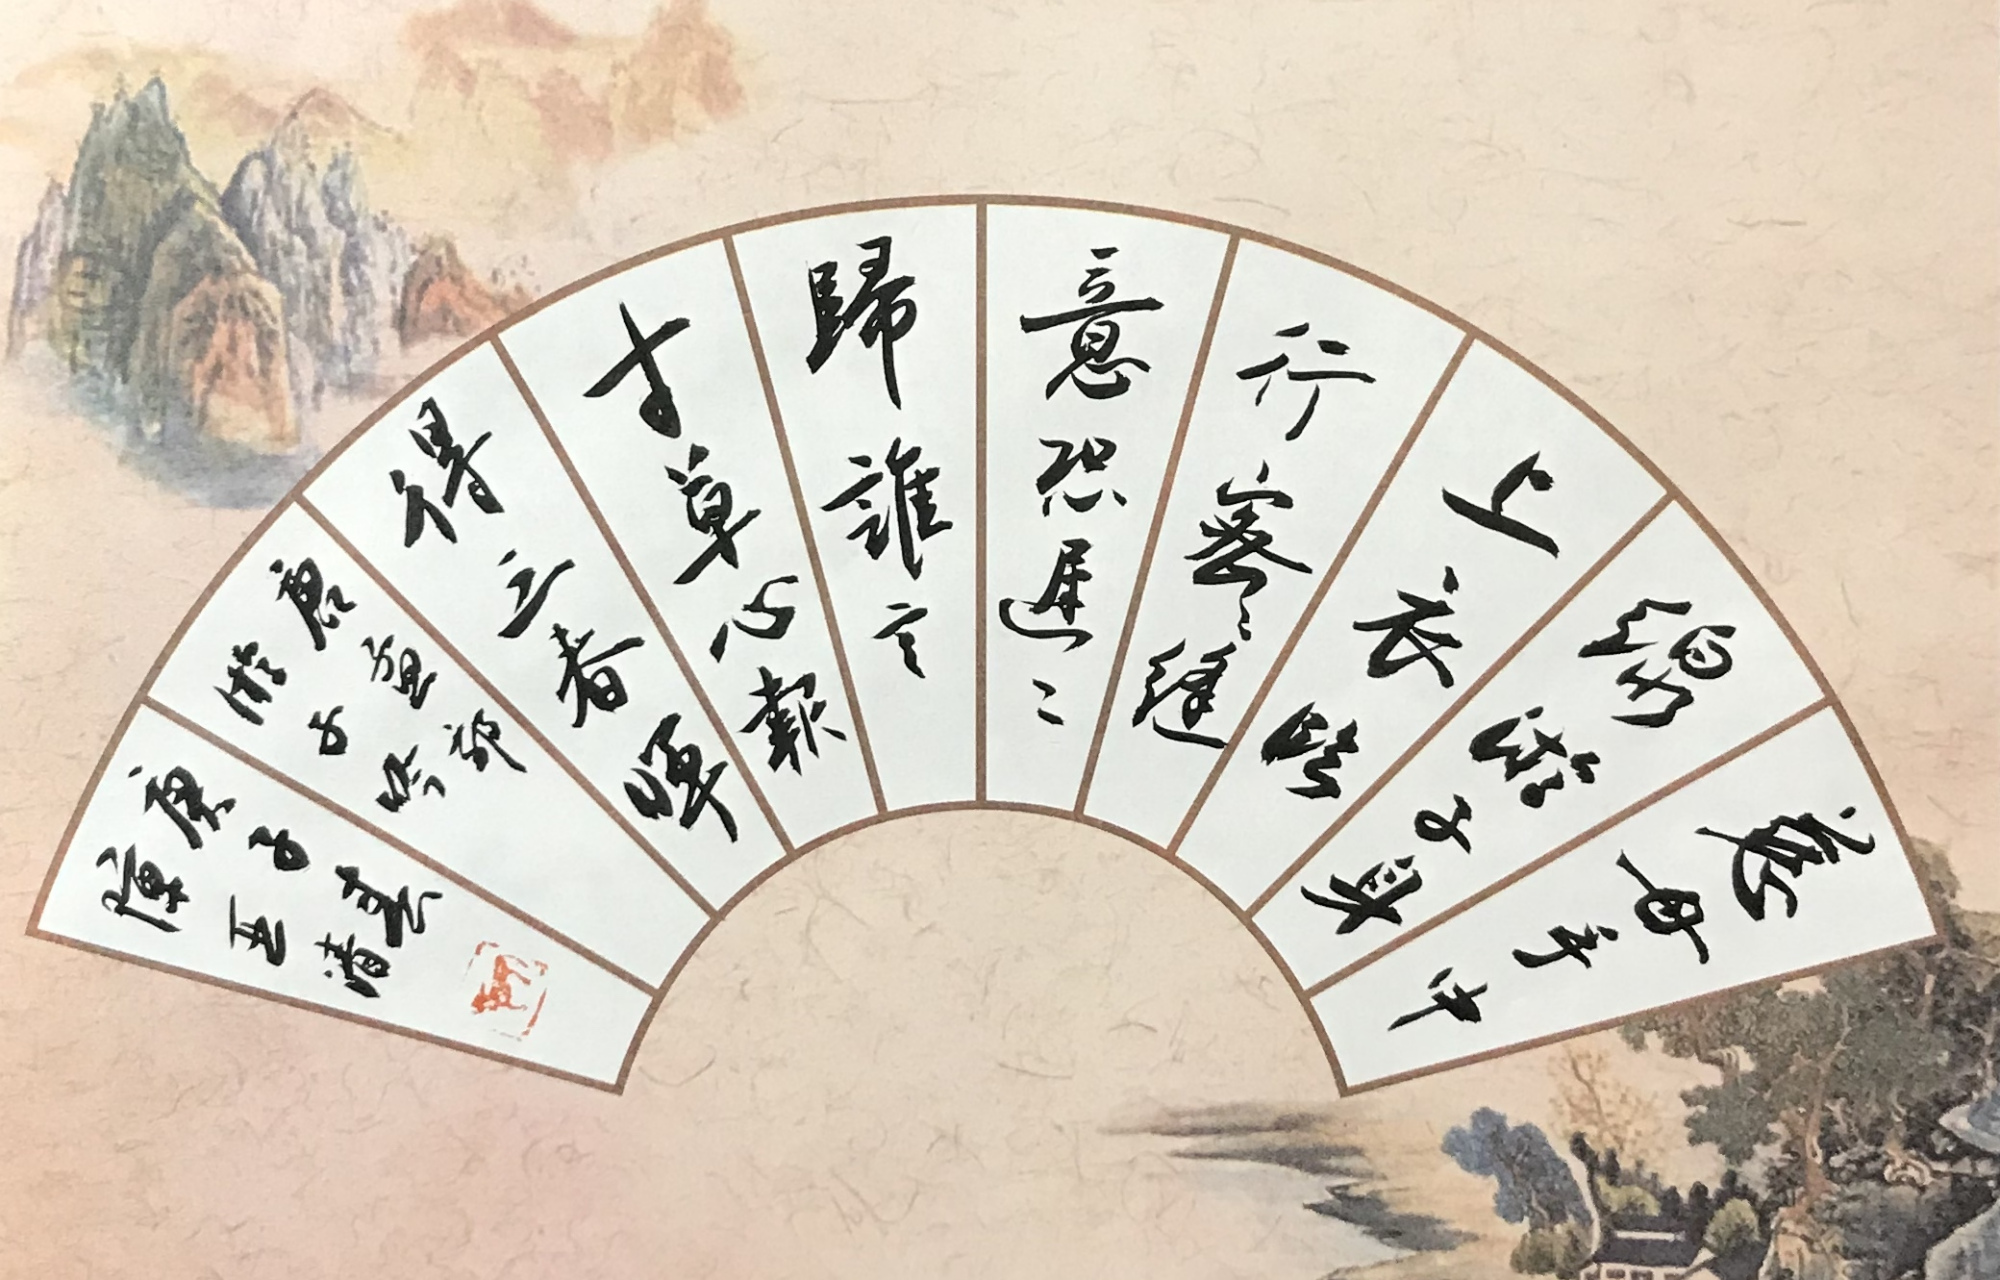 慈母手中
線游子身
上衣臨
行密〻縫
意恐遲〻
歸誰言
寸草心報
得三春暉
唐孟郊
游子吟
庚子
清